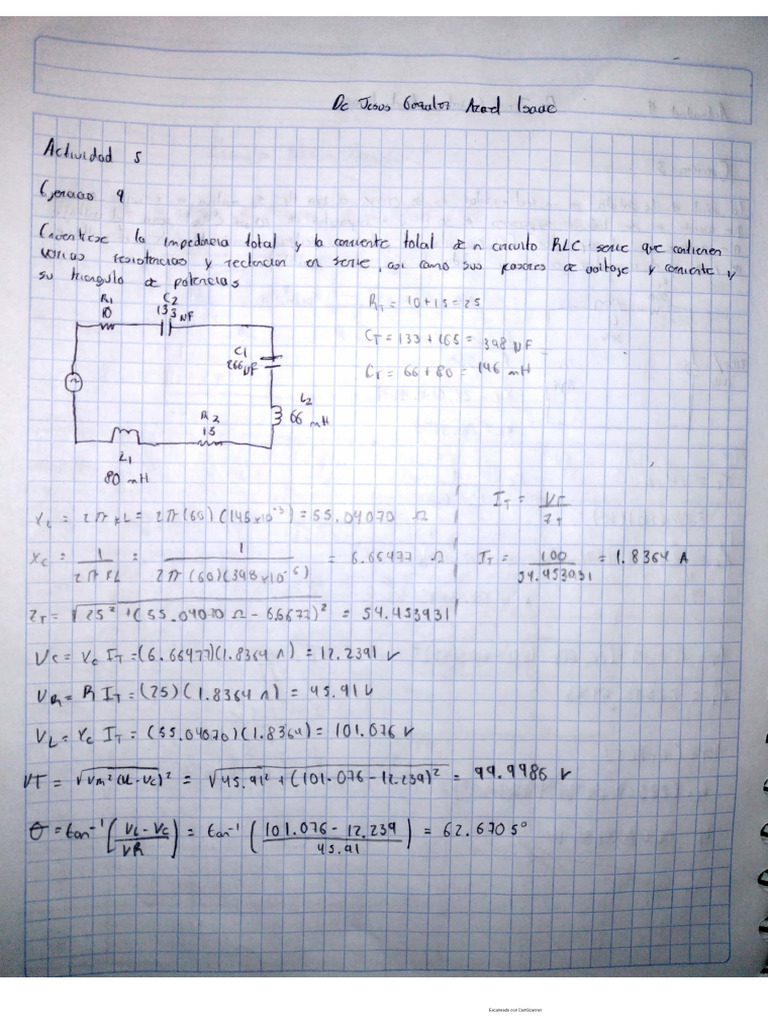 De Jesus Gonzalez Azael Isaac
Actividad 5
Ejercicio 9
Encuentrese la impedancia total y la corriente total de n circuito RLC serie que contienen
varias resistencias y rectencion en serie, asi como sus fasores de voltaje y corriente y
su triangulo de potencias
R1
10
C2
133 NF
C1
266 NF
L2
66 mH
R2
15
L1
80 mH
RT = 10+15=25
CT = 133 + 165 = 398 NF
CT = 66 + 80 = 146 mH
XL = 2πxL = 2π(60)(146x10⁻³) = 55.04070 Ω
XC = 1/2πxL = 1/2π(60)(398x10⁻⁶) = 6.66477 Ω
ZT = √25² + (55.04070 Ω - 6.6677)² = 54.453931
IT = VT/ZT
IT = 100/54.453931 = 1.8364 A
VC = XC IT = (6.66477)(1.8364 A) = 12.2391 V
VR = R IT = (25)(1.8364 A) = 45.91 V
VL = XC IT = (55.04070)(1.8364) = 101.076 V
VT = √VR²(VL-VC)² = √45.91² + (101.076 - 12.239)² = 99.9986 V
θ = tan⁻¹(VL-VC/VR) = tan⁻¹(101.076 - 12.239/45.91) = 62.6705°
Escaneado con CamScanner